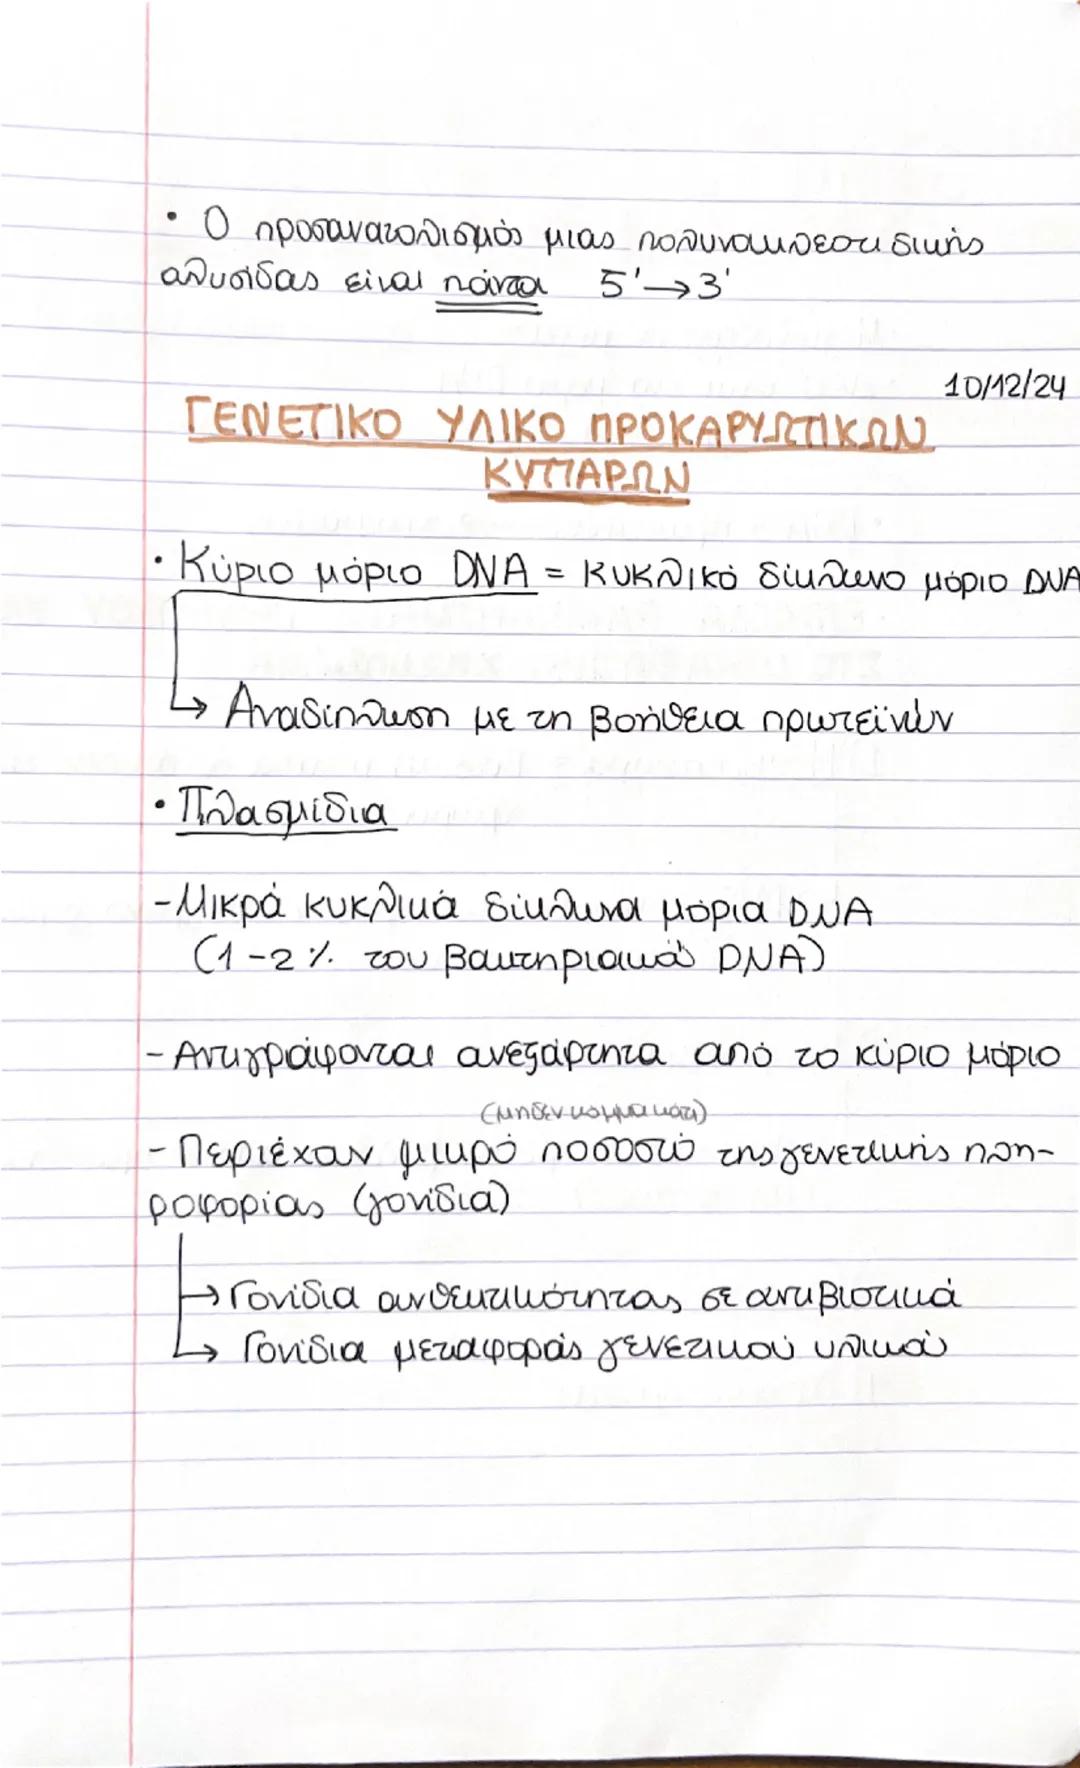 • Ο προσανατολισμός μιας πολυνουκλεοτιδικής
αλυσίδας είναι πάντα 5'→3'
10/12/24
ΓΕΝΕΤΙΚΟ ΥΛΙΚΟ ΠΡΟΚΑΡΥΩΤΙΚΩΝ
ΚΥΤΤΑΡΩΝ
• Κύριο μόριο DNA = κυκλικό δίκλωνο μόριο DNA
→ Αναδίπλωση με τη βοήθεια πρωτεϊνών
• Πλασμίδια
- Μικρά κυκλικά δίκλωνα μόρια DNA
(1-2% του βακτηριακού DNA)
- Αντιγράφονται ανεξάρτητα από το κύριο μόριο
(μηδέν κόμμα κάτι)
- Περιέχουν μικρό ποσοστό της γενετικής πλη-
ροφορίας (γονίδια)
→ Γονίδια ανθεκτικότητας σε αντιβιοτικά
→ Γονίδια μεταφοράς γενετικού υλικού